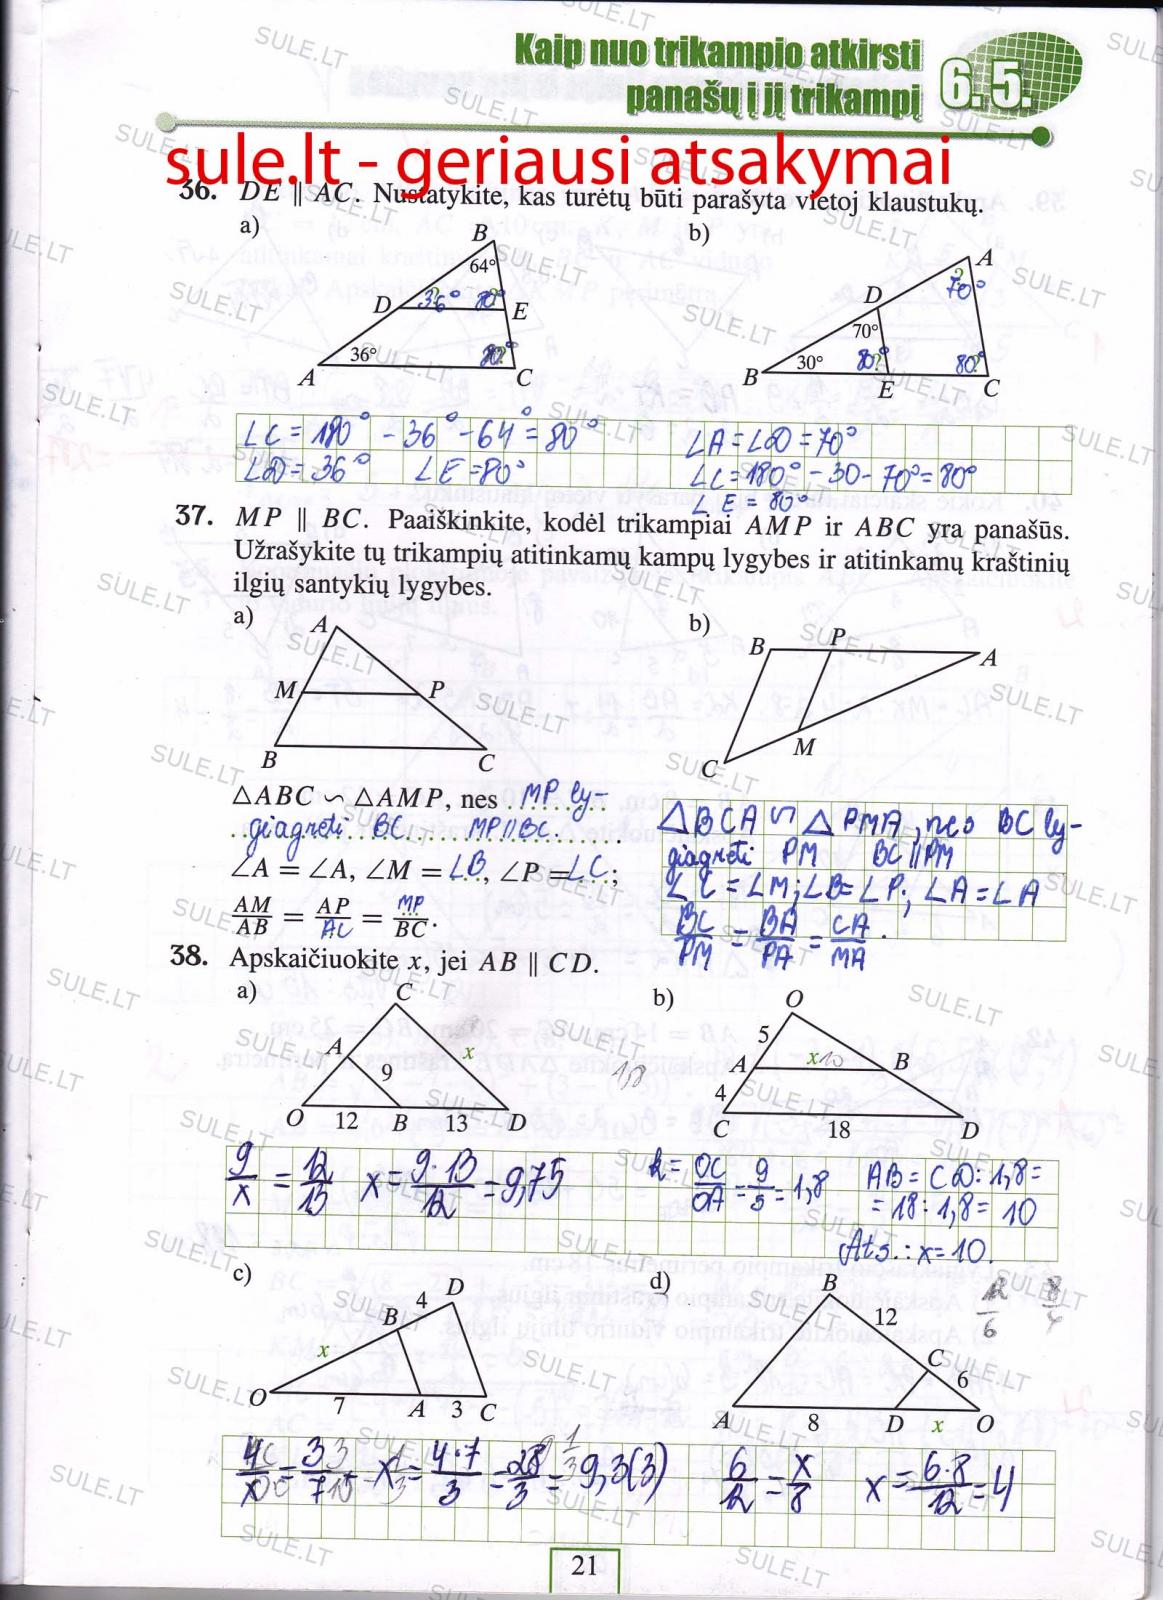 Kaip nuo trikampio atkirsti
panašų į jį trikampį
6.5.
sule.lt - geriausi atsakymai
36. DE ∥ AC. Nustatykite, kas turėtų būti parašyta vietoj klaustukų.
a)
B
64°
D 36° 80° E
36° 80°
A C
b)
A
70°
D
70°
30° 80° 80°
B E C
∠C = 180° - 36° - 64° = 80°
∠D = 36° ∠E = 80°
∠A = ∠D = 70°
∠C = 180° - 30 - 70° = 80°
∠E = 80°
37. MP ∥ BC. Paaiškinkite, kodėl trikampiai AMP ir ABC yra panašūs.
Užrašykite tų trikampių atitinkamų kampų lygybes ir atitinkamų kraštinių
ilgių santykių lygybes.
a)
A
M P
B C
b)
B P A
M
C
△ABC ∽ △AMP, nes MP ly-
giagreti BC. MP∥BC.
∠A = ∠A, ∠M = ∠B, ∠P = ∠C;
AM/AB = AP/AC = MP/BC.
△BCA ∽ △PMA, nes BC ly-
giagreti PM BC∥PM
∠C = ∠M; ∠B = ∠P; ∠A = ∠A
BC/PM = BA/PA = CA/MA.
38. Apskaičiuokite x, jei AB ∥ CD.
a)
C
A x
9
O 12 B 13 D
b)
O
5
A x 10 B
4
C 18 D
18
9/x = 12/13 x = 9·13/12 = 9,75
k = OC/OA = 9/5 = 1,8 AB = CD : 1,8 =
= 18 : 1,8 = 10
Ats.: x = 10.
c)
D
4
B
x
O 7 A 3 C
d)
B
12
C
6
A 8 D x O
4/x = 3/7 x = 4·7/3 = 28/3 = 9,3(3)
6/12 = x/8 x = 6·8/12 = 4
21
SULE.LT